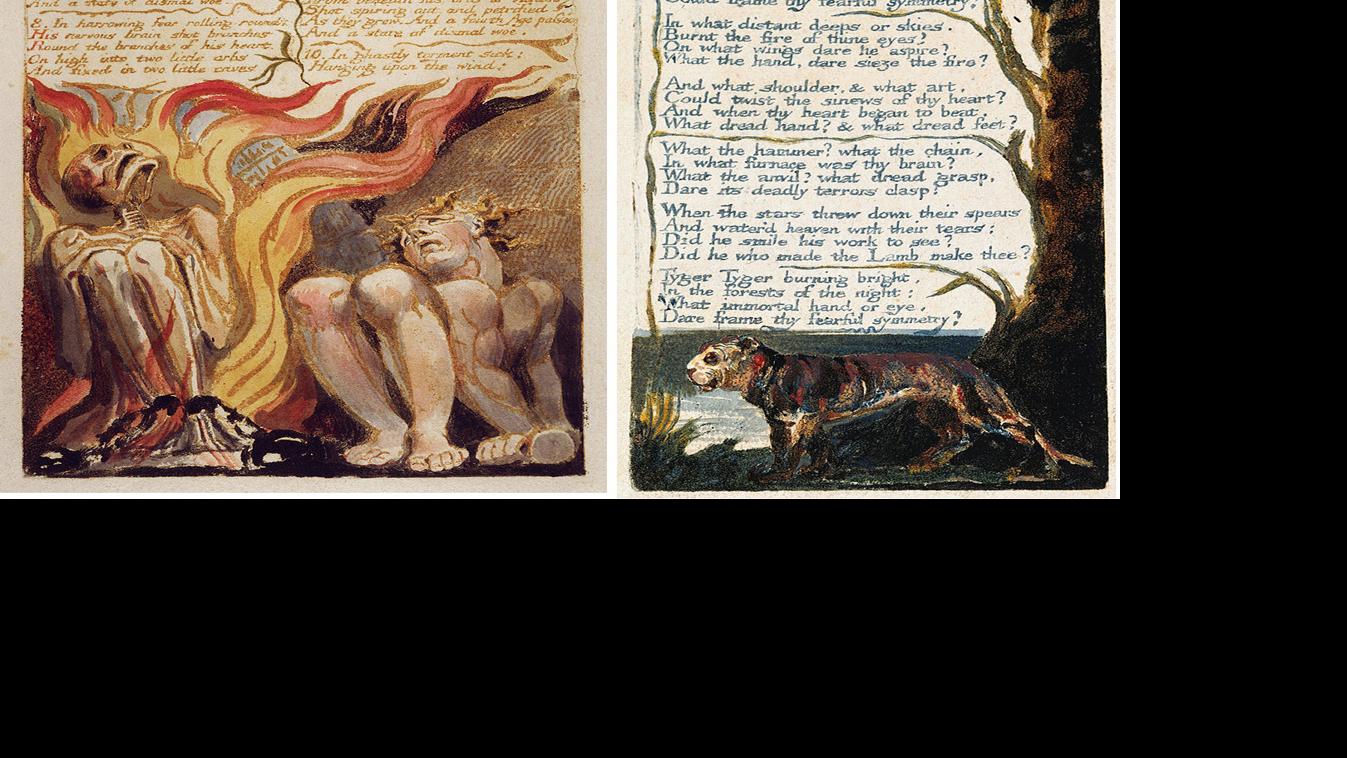 And a state of dismal woe.
8. In harrowing fear rolling round:
His nervous brain shot branches
Round the branches of his heart
On high into two little orbs
And fixed in two little caves
Shot spiring out and petrified
As they grew. And a fourth Age passed
And a state of dismal woe.
10. In ghastly torment sick:
Hanging upon the wind:
Could frame thy fearful symmetry?
In what distant deeps or skies.
Burnt the fire of thine eyes?
On what wings dare he aspire?
What the hand, dare sieze the fire?
And what shoulder, & what art,
Could twist the sinews of thy heart?
And when thy heart began to beat,
What dread hand? & what dread feet?
What the hammer? what the chain,
In what furnace was thy brain?
What the anvil? what dread grasp,
Dare its deadly terrors clasp?
When the stars threw down their spears
And water'd heaven with their tears:
Did he smile his work to see?
Did he who made the Lamb make thee?
Tyger Tyger burning bright,
In the forests of the night:
What immortal hand or eye,
Dare frame thy fearful symmetry?